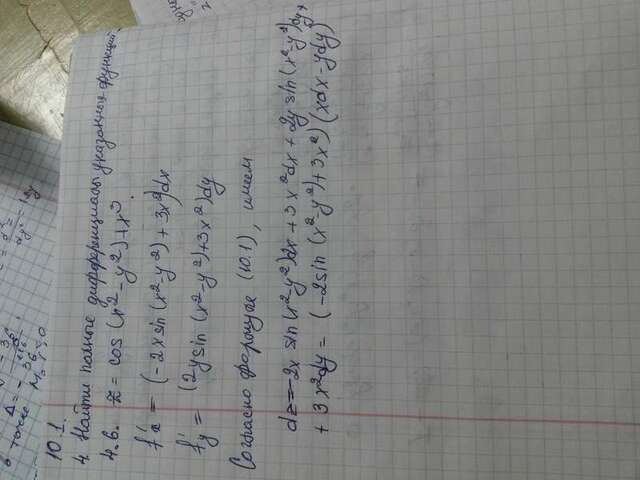 в точке
Δ = -
M₀
10.1.
4 Найти полные дифференциалы указанных функций.
4.6. z = cos (x² - y²) + x³.
f'x = (-2x sin (x² - y²) + 3x²)dx
f'y = (2y sin (x² - y²) + 3x²)dy
Согласно формуле (10.1), имеем
dz = -2x sin(x² - y²)dx + 3x²dx + 2y sin(x² - y²)dy +
+ 3x²dy = (-2sin (x² - y²) + 3x²) (xdx - ydy)